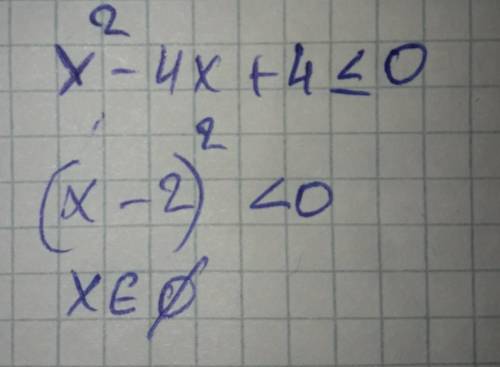 x² - 4x + 4 ≤ 0
(x - 2)² < 0
x ∈ ∅